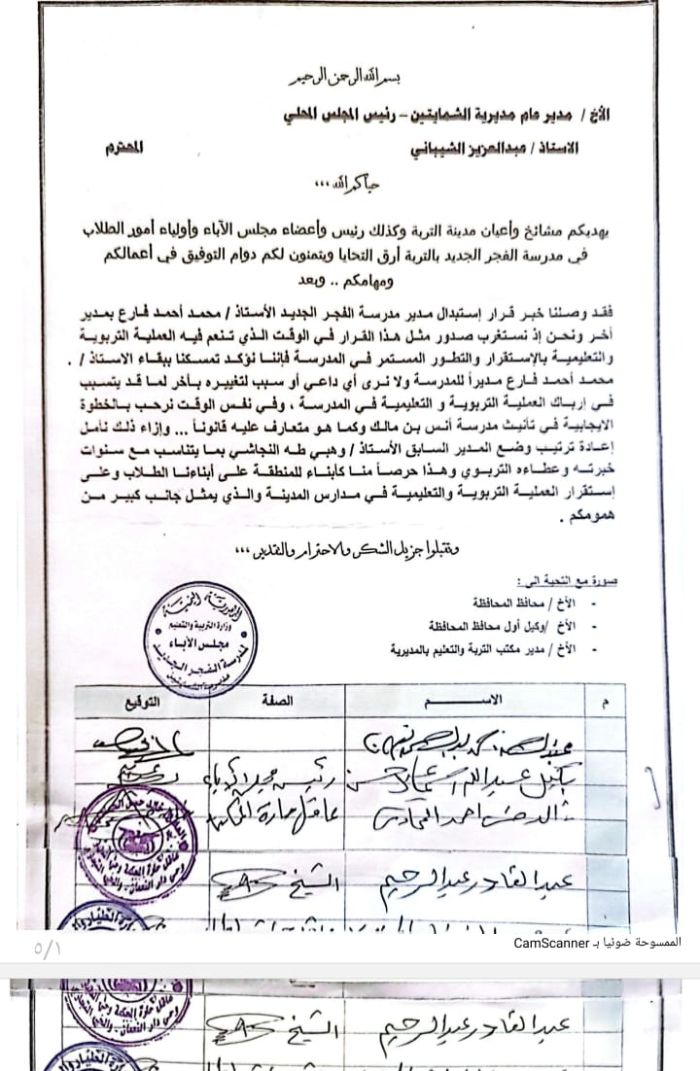 بسم الله الرحمن الرحيم
الأخ / مدير عام مديرية الشمايتين – رئيس المجلس المحلي
الاستاذ / عبدالعزيز الشيباني المحترم
حياكم الله ،،،
يهديكم مشائخ وأعيان مدينة التربة وكذلك رئيس وأعضاء مجلس الآباء وأولياء أمور الطلاب
في مدرسة الفجر الجديد بالتربة أرق التحايا ويتمنون لكم دوام التوفيق في أعمالكم
ومهامكم .. وبعد
فقد وصلنا خبر قرار إستبدال مدير مدرسة الفجر الجديد الأستاذ / محمد أحمد فارع بمدير
أخر ونحن إذ نستغرب صدور مثل هذا القرار في الوقت الذي تنعم فيه العملية التربوية
والتعليمية بالإستقرار والتطور المستمر في المدرسة فإننا نؤكد تمسكنا ببقاء الاستاذ / .
محمد أحمد فارع مديراً للمدرسة ولا نرى أي داعي أو سبب لتغييره بأخر لما قد يتسبب
في إرباك العملية التربوية و التعليمية في المدرسة ، وفي نفس الوقت نرحب بالخطوة
الايجابية في تأنيث مدرسة أنس بن مالك وكما هو متعارف عليه قانوناً ... وإزاء ذلك نأمل
إعادة ترتيب وضع المدير السابق الأستاذ / وهبي طه النجاشي بما يتناسب مع سنوات
خبرته وعطاءه التربوي وهذا حرصاً منا كأبناء للمنطقة على أبناءنا الطلاب وعلى
إستقرار العملية التربوية والتعليمية في مدارس المدينة والذي يمثل جانب كبير من
همومكم .
وتقبلوا جزيل الشكر والاحترام والتقدير ،،،
صورة مع التحية الى :
- الأخ / محافظ المحافظة
- الأخ /وكيل أول محافظ المحافظة
- الأخ / مدير مكتب التربة والتعليم بالمديرية
الجمهورية اليمنية
وزارة التربية والتعليم
مجلس الآباء
لمدرسة الفجر الجديد
م الاســـم الصفة التوقيع
رئيس مجلس الآباء
احمد
عبدالقادر عبدالرحيم الشيخ
الممسوحة ضوئيا بـ CamScanner
٥/١
عبدالقادر عبدالرحيم الشيخ